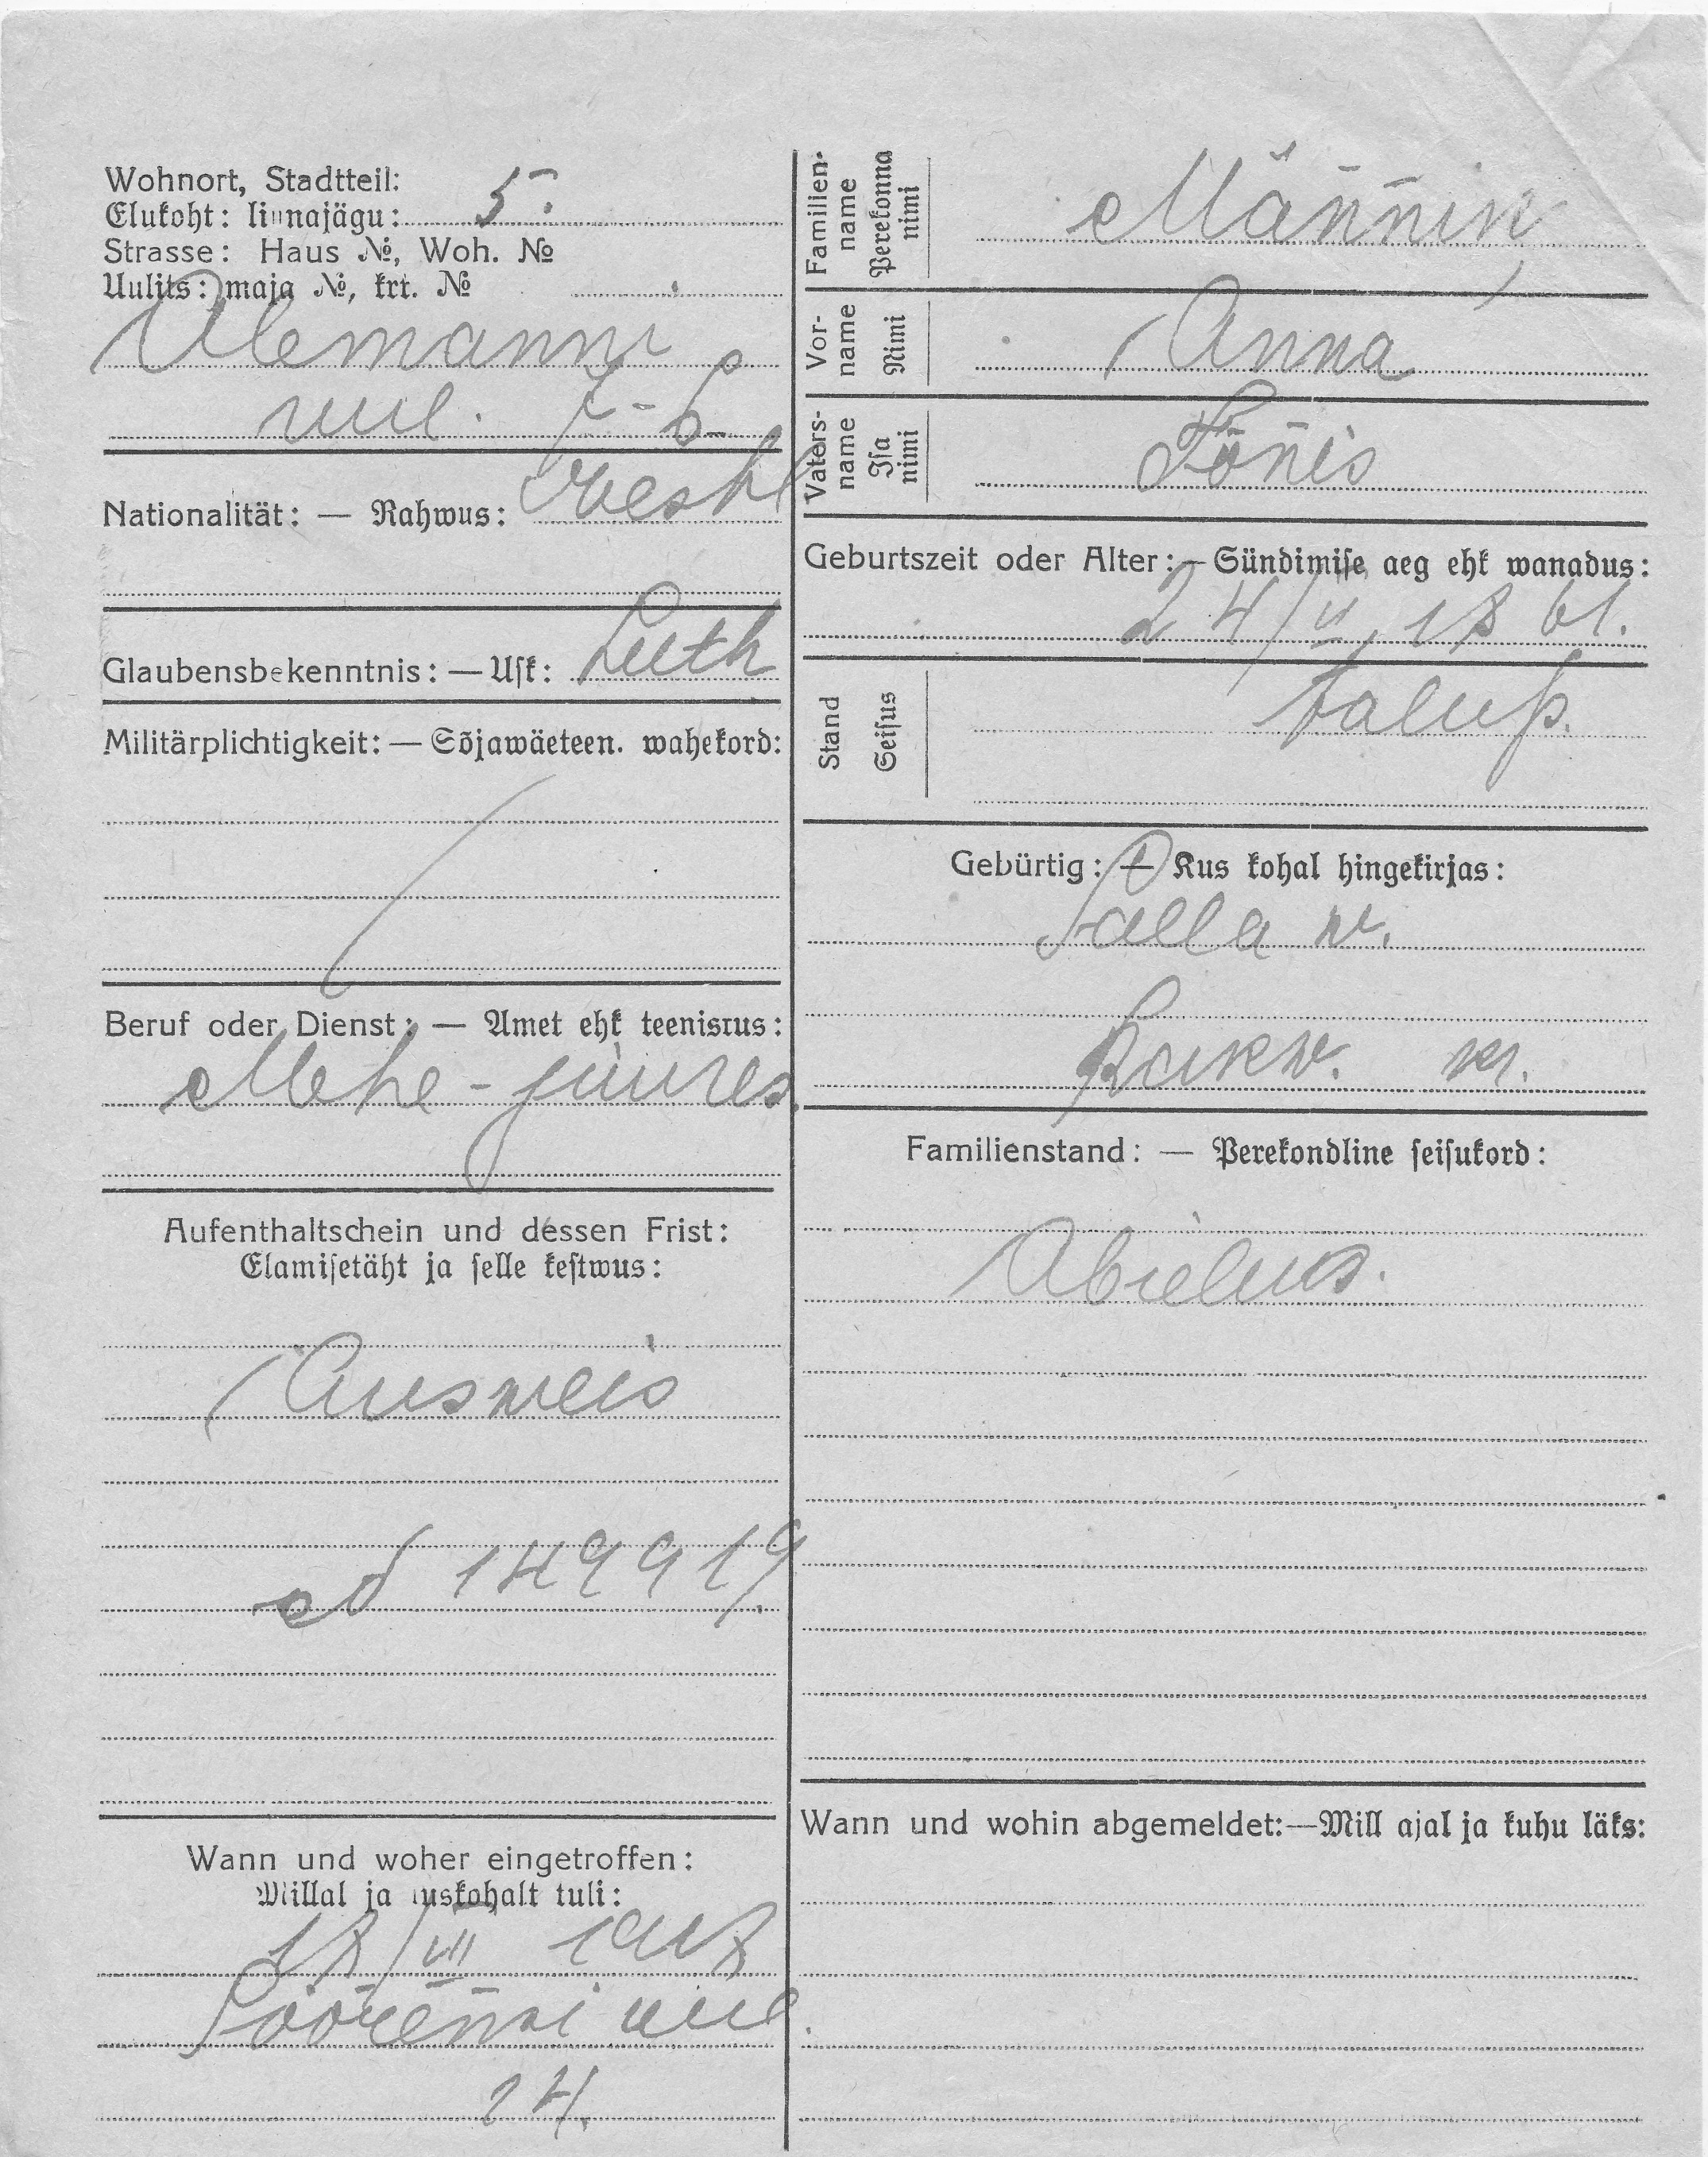 Wohnort, Stadtteil:
Elukoht: linnajägu: 5.
Strasse: Haus №, Woh. №
Uulits: maja №, krt. №
uul. 7-6
Nationalität: — Rahwus: eestl
Glaubensbekenntnis: — Usk: Luth
Militärplichtigkeit: — Sõjawäeteen. wahekord:
Beruf oder Dienst: — Amet ehk teenistus:
Mehe - juures
Aufenthaltschein und dessen Frist:
Elamisetäht ja selle kestwus:
Ausweis
149919
Wann und woher eingetroffen:
Millal ja kuskohalt tuli:
uul
24.
Familienname
Perekonna nimi
Männik
Vorname
Nimi
Anna
Vatersname
Isa nimi
Tõnis
Geburtszeit oder Alter: — Sündimise aeg ehk wanadus:
24/II, 18 61.
Stand
Seisus
talup.
Gebürtig: — Kus kohal hingekirjas:
w.
Rakw. kr.
Familienstand: — Perekondline seisukord:
Abielus.
Wann und wohin abgemeldet:—Mill ajal ja kuhu läks: